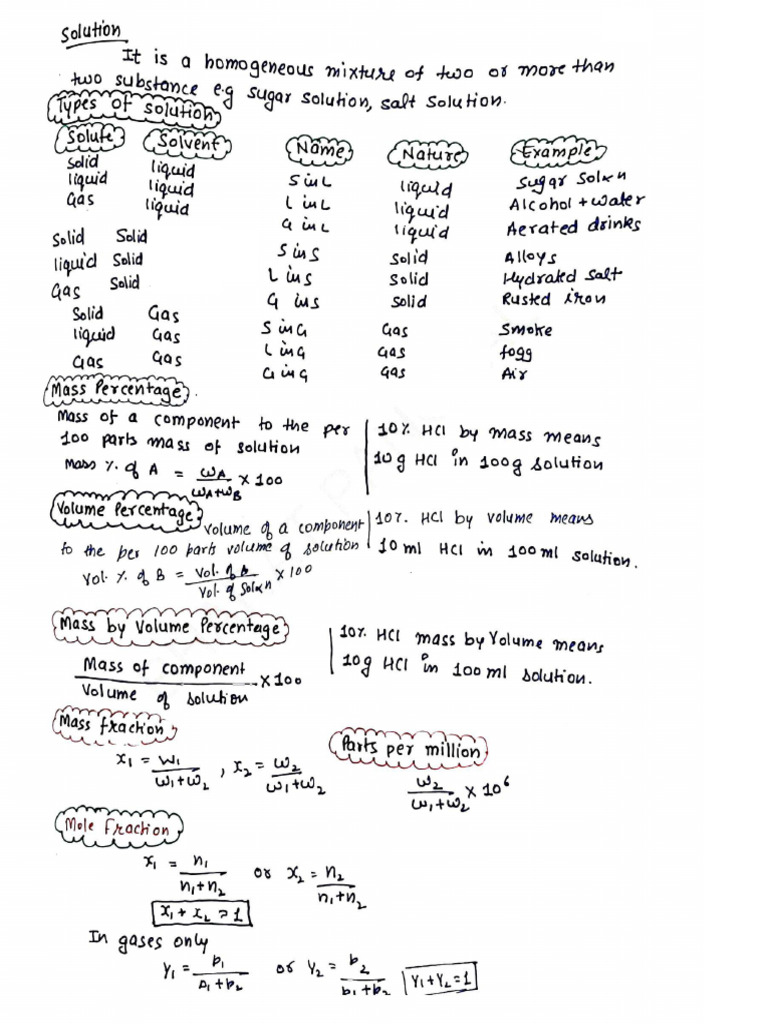 Solution
It is a homogeneous mixture of two or more than
two substance e.g sugar solution, salt solution.
Types of solution
Solute Solvent Name Nature Example
solid liquid S in L liquid Sugar Solxn
liquid liquid L in L liquid Alcohol + water
Gas liquid G in L liquid Aerated drinks
Solid Solid S in S solid Alloys
liquid Solid L in S Solid Hydrated salt
Gas Solid G in S Solid Rusted iron
Solid Gas S in G Gas Smoke
liquid Gas L in G Gas fogg
Gas Gas G in G Gas Air
Mass Percentage
Mass of a component to the per
100 parts mass of solution
Mass % of A = ωA/ωA+ωB × 100
10% HCl by mass means
10g HCl in 100g solution
Volume Percentage
Volume of a component
to the per 100 parts volume of solution
Vol. % of B = Vol. of B/Vol. of Solxn × 100
10%. HCl by volume means
10 ml HCl in 100 ml solution.
Mass by Volume Percentage
Mass of component/Volume of solution × 100
10% HCl mass by Volume means
10g HCl in 100 ml solution.
Mass fraction
x1 = w1/ω1+ω2 , x2 = ω2/ω1+ω2
Parts per million
ω2/ω1+ω2 × 10⁶
Mole Fraction
x1 = n1/n1+n2 or x2 = n2/n1+n2
x1 + x2 = 1
In gases only
Y1 = p1/p1+p2 or Y2 = p2/p1+p2 Y1+Y2=1